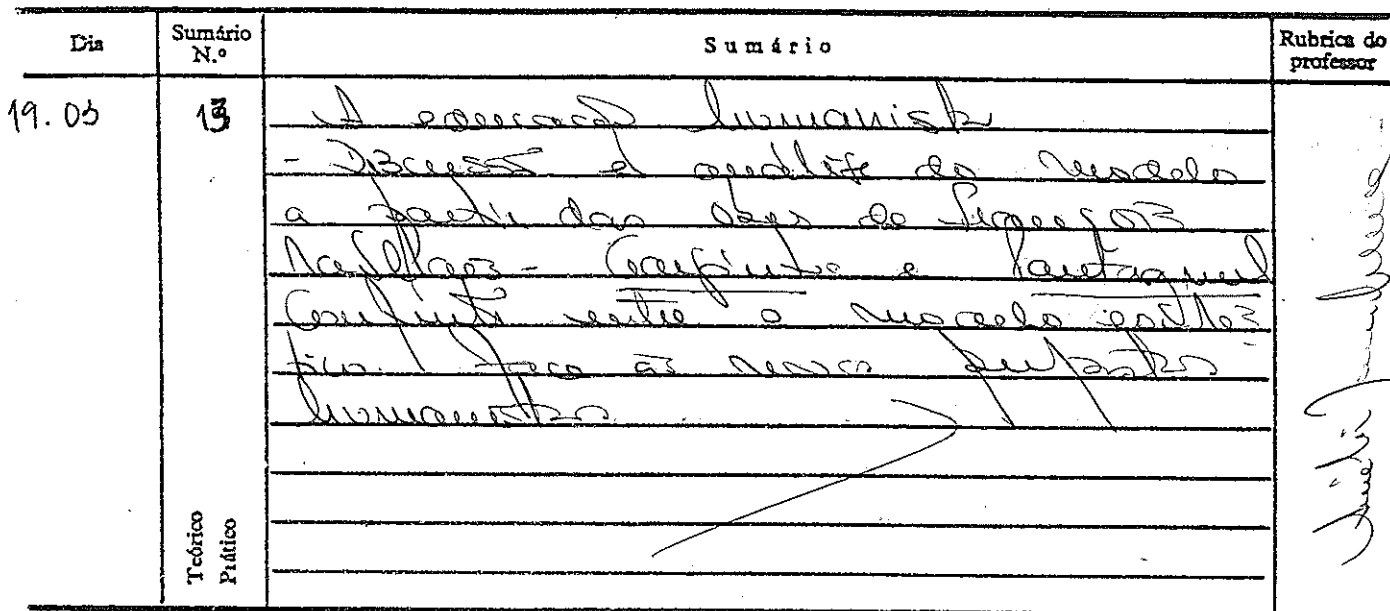 Dia
Sumário N.º
Sumário
Rubrica do professor
19.03
13
A educação humanista
- Discussão e análise do modelo
a partir das obras de François
Rabelais - Gargântua e Pantagruel
Confronto entre o modelo escolás-
tico face às novas propostas
humanistas
Teórico
Prático